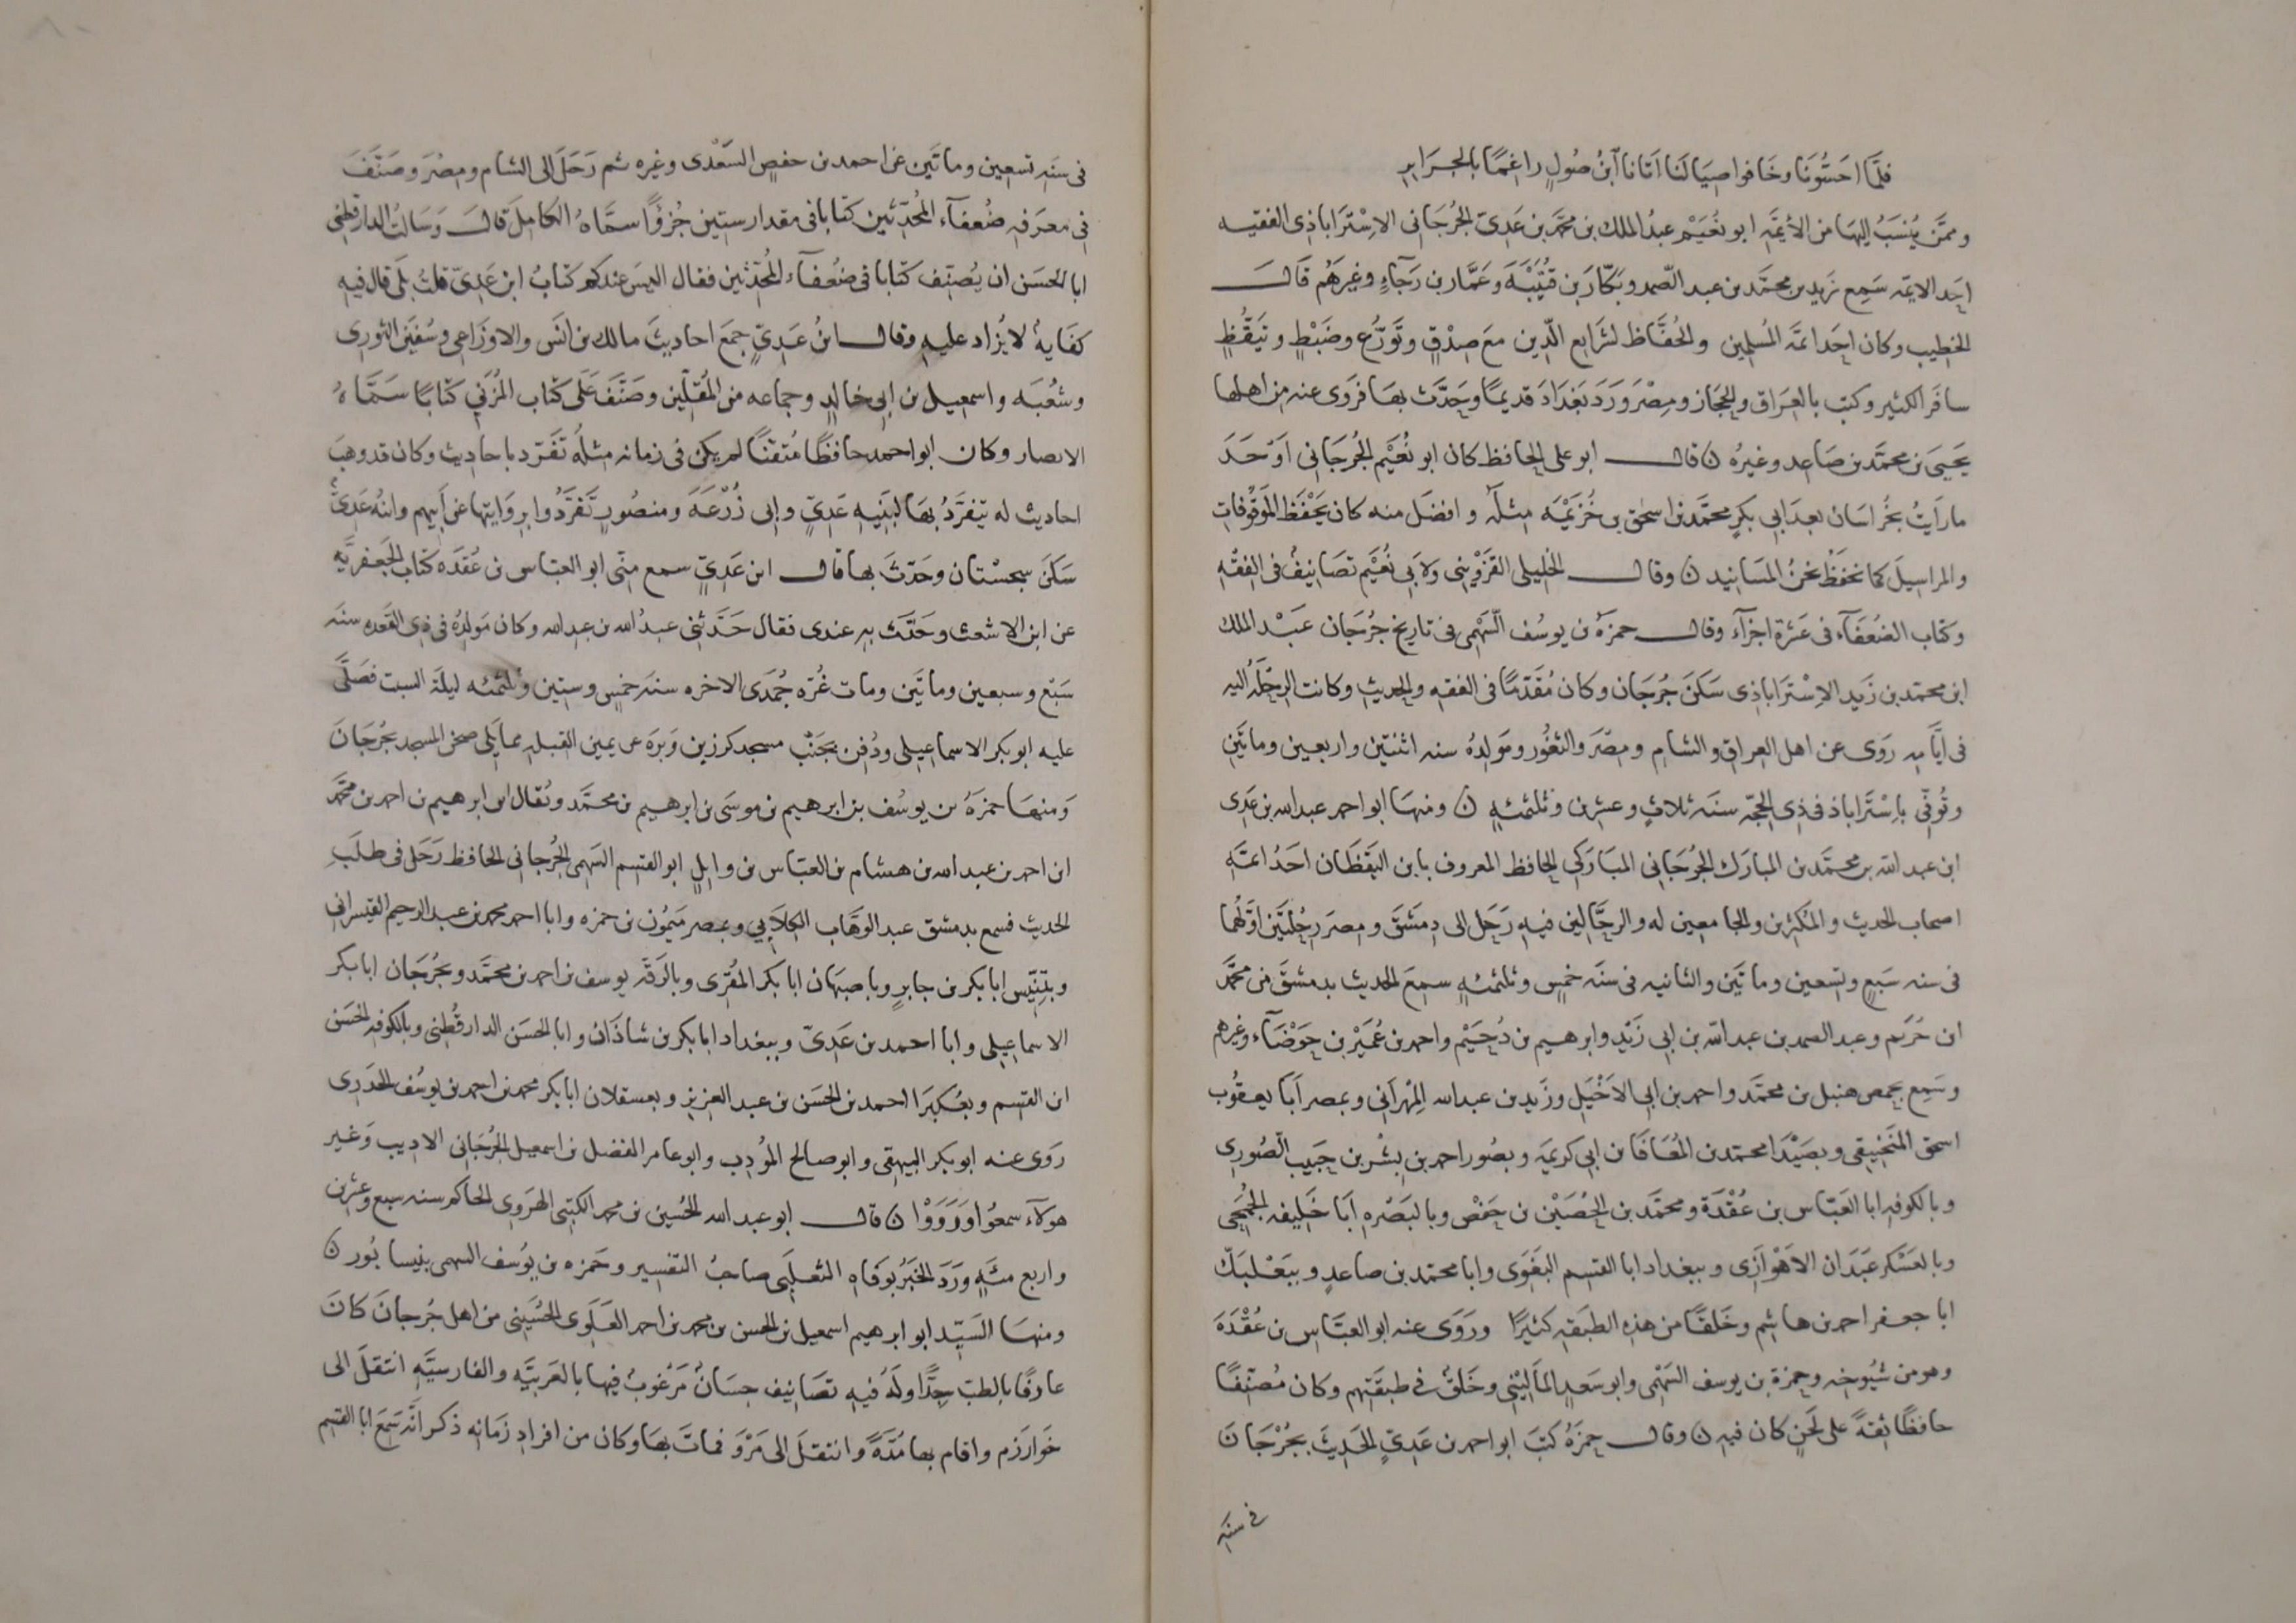 فلمّا احَسُّونا وخافوا صِيَالَنا اَتانا اَبنُ صُولٍ راغِمًا بالجَرَايرِ
وممَّن يُنسَبُ اِليهَا من الأيمَّه ابو نُعَيْم عبدُ الملك بن محمَّد بن عَدِيّ الجُرْجَانى الاِسْتَراباذى الفقيه
احَد الايمّه سَمِع يزيد بن محمَّد بن عبد الصّمد وبَكّارَ بن قُتَيْبَةَ وعَمَّار بن رَجآءٍ وغيرَهُم قَالَ
الخطِيب وكان احَد ائمَّة المُسلمِين والحُفَّاظ لشَرَايع الدّين مَعَ صِدْقٍ وتَوَرُّعٍ وضَبْطٍ وتيَقُّظٍ
سافَر الكثِير وكتب بالعِرَاق والحِجَاز ومِصْرَ وَرَدَ بَغدَادَ قديمًا وحَدَّث بهَا فرَوَى عنه من اهلها
يَحيَى بن محمَّد بن صَاعِد وغيرُه ن قال ابو على الحافظ كان ابو نُعَيْم الجُرجَانى اَوْحَدَ
ما رَاَيتُ بخُراسَان بعدَ ابى بكرٍ محمَّد بن اسحق بن خُزَيْمَه مثلَه وافضَل منه كان يَحْفَظ المَوقُوفاتِ
والمراسِيلَ كما نحفَظُ نحنُ المسَانِيد ن وقال الخلِيلى القَزْوِينى ولاَبى نُعَيْم تصَانِيفُ فى الفِقْه
وكتاب الضُعَفَآء فى عَشَرة اجزآءَ وقال حمزَةُ بن يوسُف السَّهْمى فى تاريخ جُرْجَان عَبْد الملك
ابن محمّد بن زَيد الاِسْتَراباذى سَكَنَ جُرجَان وكان مُقَدَّمًا فى الفقهِ والحدِيثِ وكانت الرِحْلَةُ اليه
فى ايَّامِه رَوَى عن اهل العراق والشام ومصْرَ والثغُور ومَوْلِدُهُ سنه اثنَتين واربعين وماتَين
وتُوفّى باِسْتَراباذ فى ذِى الحِجَّه سنَه ثلاثٍ وعشرِن وثلثمئةٍ ن ومنهَا ابو احمد عبد الله بن عَدِى
ابن عبد الله بن محمّد بن المبارَك الجُرجَانى المبَارَكى الحافظ المعروف بابن القطَّان احَدُ ائمّه
اصحاب الحديث والمُكثِرين والجامعين له والرحَّالين فيهِ رَحَل الى دِمَشقَ ومِصرَ رِحْلتَين اوّلُهُما
فى سنه سَبعٍ وتسعين وماتَين والثانيه فى سنَه خمسٍ وثلثمئةٍ سمعَ الحديث بدمشقَ من محمَّد
ابن خُرَيم وعبد الصمد بن عبد الله بن ابى زَيد وابرهيم بن دُحَيْم واحمد بن عُمَيْر بن جَوْصَآء وغيرهم
وسَمِع بحِمص هنبل بن محمّد واحمد بن ابى الاَخْيَلِ وزَيد بن عبد الله المِهْرانى وبمصر اَبا يعقُوب
اسحق المنجنيقى وبصَيْدَا محمّد بن المُعَافَا بن ابى كريمَه وبصُور احمد بن بِشْر بن حَبيب الصُورى
وبالكوفه ابا العَبّاس بن عُقْدَة ومحمَّد بن الحُصَيْن بن حَفْص وبالبَصْرهِ اَبَا خَلِيفه الجُمَحى
وبالعَسْكر عَبْدَان الاَهْوَازى وببغداد ابا القسم البَغَوى وابا محمّد بن صاعدٍ وببَعْلَبَكّ
ابا جعفر احمد بن هاشم وخَلقًا من هذه الطبَقهِ كثيرًا ورَوَى عنه ابو العبّاس بن عُقْدَةَ
وهو من شيُوخه وحمزة بن يوسف السَهْمى وابو سَعد المالينى وخَلقٌ فى طبقَتهم وكان مُصنّفًا
حافظًا ثقهً على لَحنٍ كان فيه ن وقال حمزَةُ كتَبَ ابو احمد بن عَدِىّ الحَدِيثَ بجُرْجَانَ
فى سنَه
فى سَنَه تسعين وماتَين عن احمد بن حفصٍ السَّعْدى وغيره ثم رَحَلَ الى الشام ومِصْرَ وصَنَّفَ
فى معرَفه ضُعفآء المُحَدّثين كتابا فى مقدار ستين جُزؤًا سمَّاهُ الكامِلَ قال وسَالتُ الدارقطنى
ابا الحَسَن ان يُصنّف كتابا فى ضُعَفآء المُحدّثين فقال اليس عندكم كتابُ ابن عَدِىّ قلتُ بلَى قال فيه
كفَايةٌ لا يُزاد عليهِ وقال ابنُ عَدِىٍّ جمَعَ احاديثَ مالك بن انَس والاوزَاعى وسُفيَن الثورى
وشُعْبَه واسمعيل بن ابى خالدٍ وجماعه من المُقلّين وصَنَّفَ عَلَى كتاب المُزَنى كتابًا سَمَّاهُ
الانصار وكان ابو احمد حافظًا مُتقنًا لم يكن فى زمانه مثلُه تفَرّد باحاديث وكان قد وهَبَ
احاديث له يتفرَّدُ بهَا لبَنِيهِ عَدِىٍّ وابى زُرْعَةَ ومنصُورٍ تفَرَّدُوا برِوَايتها عن اَبيهم وابنُه عَدِىٌّ
سَكَنَ سجِسْتان وحَدّثَ بها قال ابن عَدِىٍّ سمع منّى ابو العبّاس بن عُقدَه كتابَ الجَعفَريَّه
عن ابن الاشعث وحَدَّث بِه عندى فقال حَدَّثنى عبدُ الله بن عبد الله وكان مَولِدُهُ فى ذى القَعده سنَه
سَبْع وسبعين وماتَين ومات غُرّه جُمَدَى الاخره سنَه خمسٍ وستين وثلثمئه ليلة السبت فصَلَّى
عليه ابو بكر الاسماعِيلى ودُفن بجَنْب مسجد كرزين وَبَرَه عن يمين القبله مما يَلى صحْن المسجد بجُرجَانَ
وَمنهَا حمزَةُ بن يوسُف بن ابرهيم بن موسَى بن ابرهيم بن محمّد ويُقال ابن ابرهيم بن احمد بن محمَّد
ابن احمد بن عبد الله بن هشام بن العبّاس بن وايلٍ ابو القسم السَهمى الجُرجانى الحافظ رَحَل فى طلَبِ
الحديث فسمع بدمشق عبد الوَهَّاب الكِلاَبى وبمصر مَيمُون بن حمزه وابا احمد محمد بن عبد الرحيم القَيسرانى
وبتِنِّيس ابا بكر بن جابرٍ وباصبهان ابا بكر المُقرى وبالرَقَّه يوسف بن احمد بن محمّد وبجُرجَان ابا بكر
الاسماعِيلى وابا احمد بن عَدِىّ وببغداد ابا بكر بن شاذَان وابا الحَسَن الدارقُطنى وبالكوفهِ الحَسَن
ابن القسم وبعُكبَرَا احمد بن الحَسَن بن عبد العزيز وبعسقلان ابا بكر محمد بن احمد بن يوسُف الحدَرى
رَوَى عنه ابو بكر البيهقى وابو صالح المُؤدب وابو عامر الفضل بن اسمعيل الجُرْجَانى الاديب وَغير
هولآء سمعُوا ورَوَوْا ن قال ابو عبد الله الحُسين بن محمد الكتبى الهَرَوى الحاكم سنه سبع وعشرِن
واربع مئةٍ ورَدَ الخبَرُ بوَفاه الثعلَبى صاحبُ التفسير وحَمزه بن يُوسف السهمى بنيسابُور ن
ومنهَا السَيّد ابو ابرهيم اسمعيل بن الحسن بن محمد بن احمد العَلَوى الحُسَينى من اهل جُرجانَ كانَ
عارفًا بالطبّ جِدًّا ولَهُ فيه تصَانِيف حِسَانٌ مَرْغوبٌ فيها بالعَربيَّه والفارسيَّهِ انتقلَ الى
خَوارَزم واقام بها مُدّهً وانتقلَ الى مَرْوَ فماتَ بهَا وكان من افراد زمَانه ذكر انَّهُ سَمعَ ابا القسم